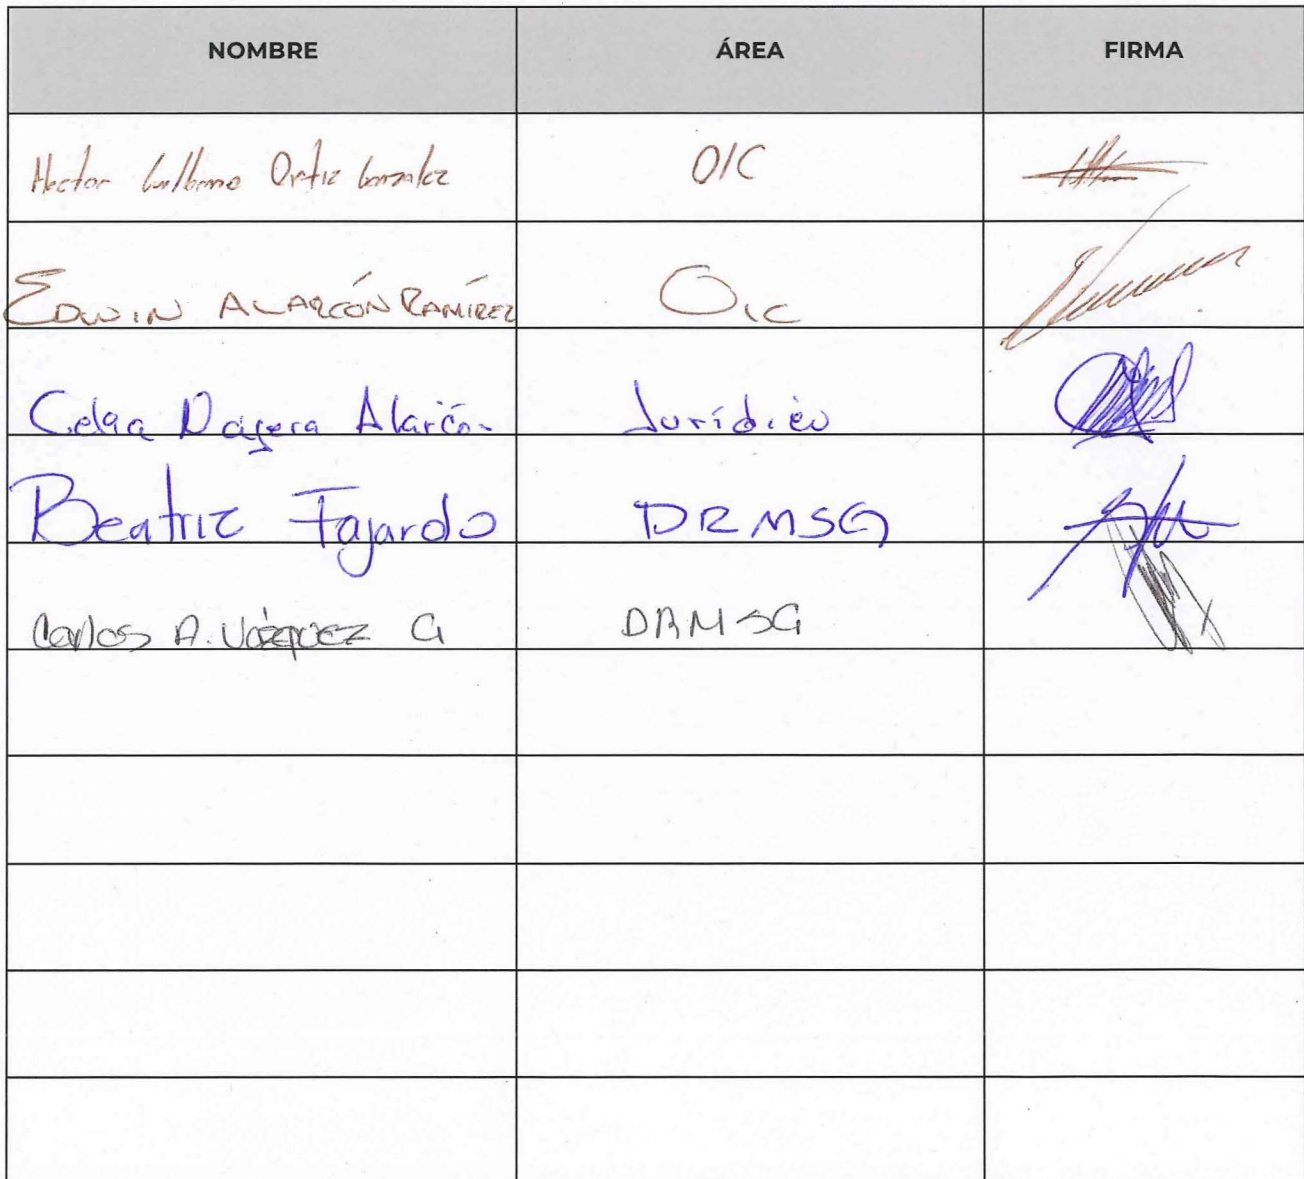 NOMBRE ÁREA FIRMA
Hector Guillermo Ortiz Gonzalez OIC
EDWIN ALARCÓN RAMÍREZ OIC
Celia Alarcón Jurídico
Beatriz Fajardo DRMSG
Carlos A. Vázquez G DRMSG